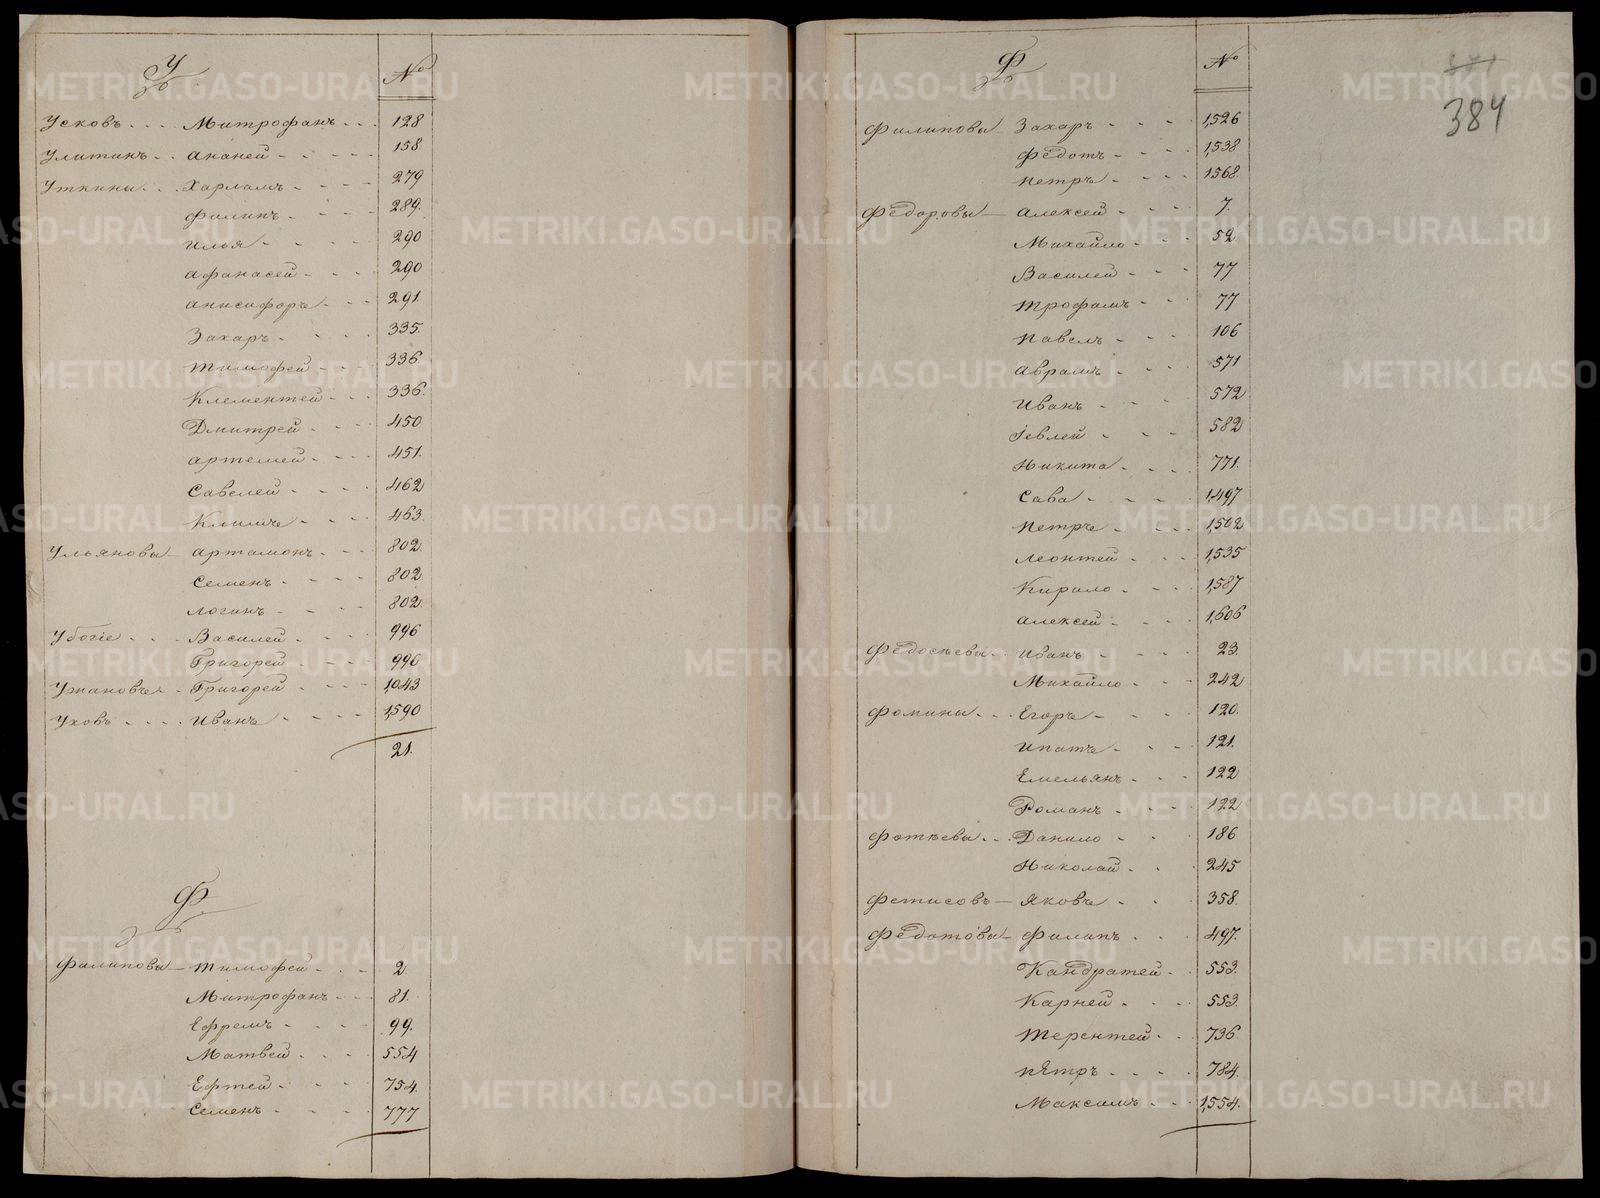 У №
Усковъ Митрофанъ 128
Улитинъ Ананей 158
Уткины Харламъ 279
Филипъ 289.
Илья 290
Афанасей 290
Анисифоръ 291.
Захаръ 335.
Тимофей 336
Клементей 336.
Дмитрей 450
Артемей 451.
Савелей 462
Климъ 463.
Ульяновы Артамонъ 802.
Семенъ 802
Логинъ 802.
Убогіе Василей 996
Григорей 996
Григорей 1,043
Уховъ Иванъ 1,590
21.
Ф
Филиповы Тимофей 2
Митрофанъ 81.
Ефремъ 99.
Матвей 554
Ефтей 754.
Семенъ 777
Ф №
384
Филиповы Захаръ 1,526
Федотъ 1,538
Петръ 1,568.
Федоровы Алексей 7.
Михайло 52
Василей 77
Трофимъ 77
Павелъ 106
Аврамъ 571
Иванъ 572
Іевлей 582
Никита 771.
Сава 1,497
Петръ 1,502
Леонтей 1,535
Кирило 1,587
Алексей 1,606
Федосѣевы Иванъ 23.
Михайло 242
Фомины Егоръ 120.
Ипатъ 121.
Емельянъ 122
Романъ 122
Фотѣевы Данило 186
Николай 245
Фетисовъ Яковъ 358.
Федотовы Филипъ 497.
Кандратей 553.
Карней 553.
Терентей 736
Пётръ 784.
Максимъ 1,554.
METRIKI.GASO-URAL.RU